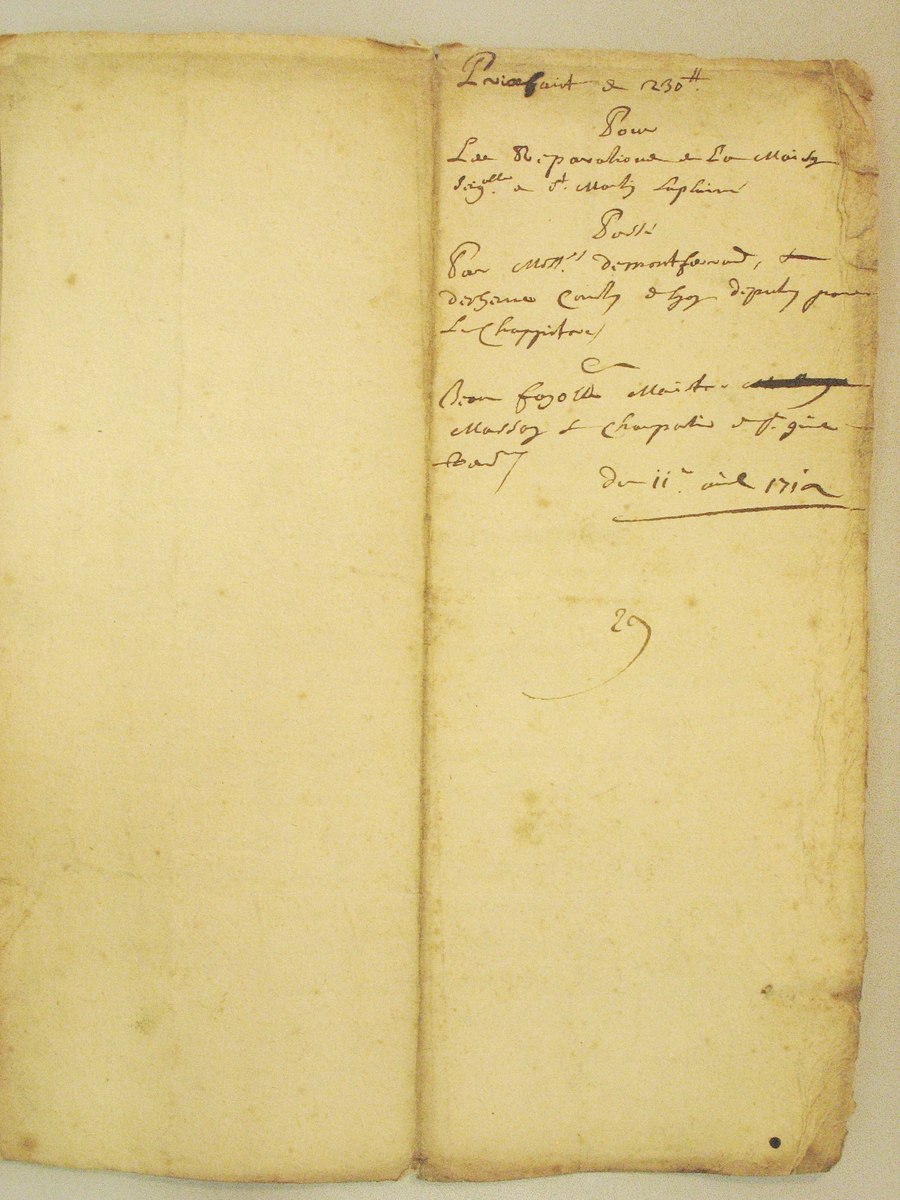 Prixfait de 230 ₶.
Pour
Les Reparations de La Maison
Seig.lle de St. Martin Laplaine
Passé
Par Mess.rs demontferrand, &
Comtes de Lyon deputés pour
Le Chappitre,
&
Jean fayolle Maistre
Masson & Charpentier de St.
du 11.e avril 1712
29